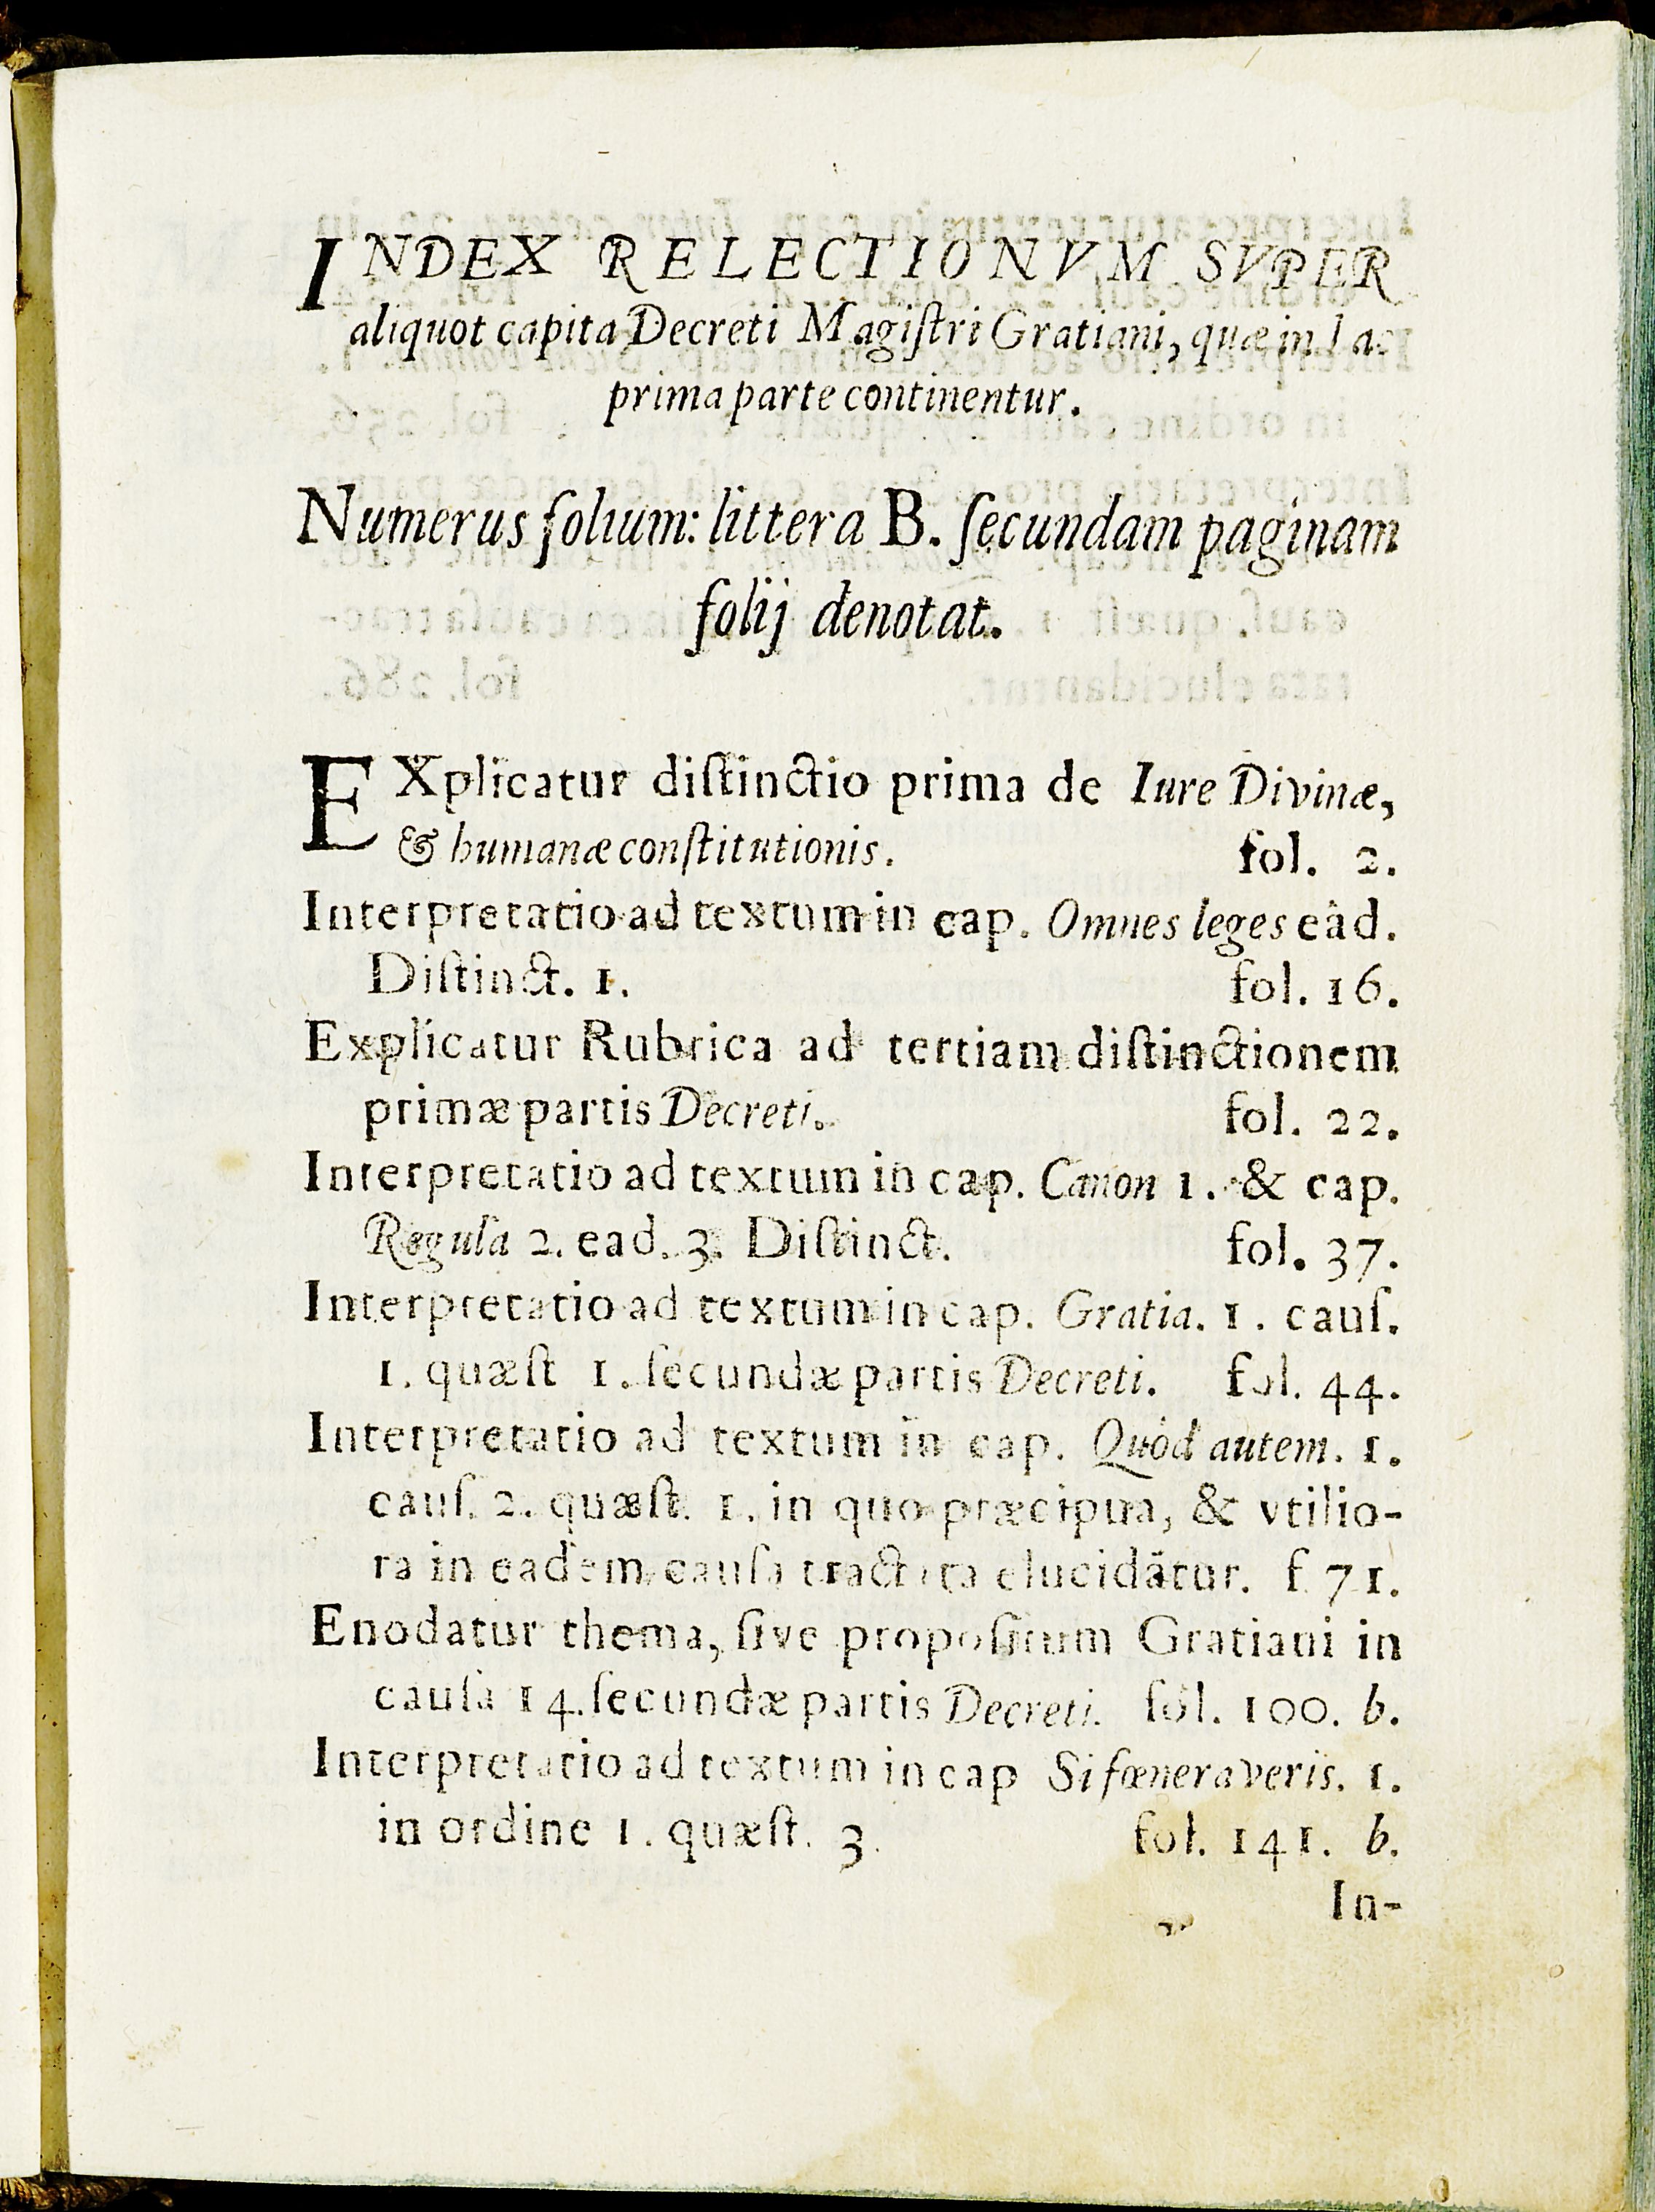 INDEX RELECTIONVM SVPER
aliquot capita Decreti Magiſtri Gratiani, quæ in hac
prima parte continentur.
Numerus folium: littera B. ſecundam paginam
folij denotat.
EXplicatur diſtinctio prima de Iure Divinæ,
& humanæ conſtitutionis. fol. 2.
Interpretatio ad textum in cap. Omnes leges ead.
Diſtinct. 1. fol. 16.
Explicatur Rubrica ad tertiam diſtinctionem
primæ partis Decreti. fol. 22.
Interpretatio ad textum in cap. Canon 1. & cap.
Regula 2. ead. 3. Diſtinct. fol. 37.
Interpretatio ad textum in cap. Gratia. 1. cauſ.
1. quæſt 1. ſecundæ partis Decreti. fol. 44.
Interpretatio ad textum in cap. Quòd autem. 1.
cauſ. 2. quæſt. 1. in quo præcipua, & vtilio-
ra in eadem cauſa tractata elucidãtur. f. 71.
Enodatur thema, ſive propoſitum Gratiani in
cauſa 14. ſecundæ partis Decreti. fol. 100. b.
Interpretatio ad textum in cap Si fœneraveris. 1.
in ordine 1. quæſt. 3. fol. 141. b.
In-